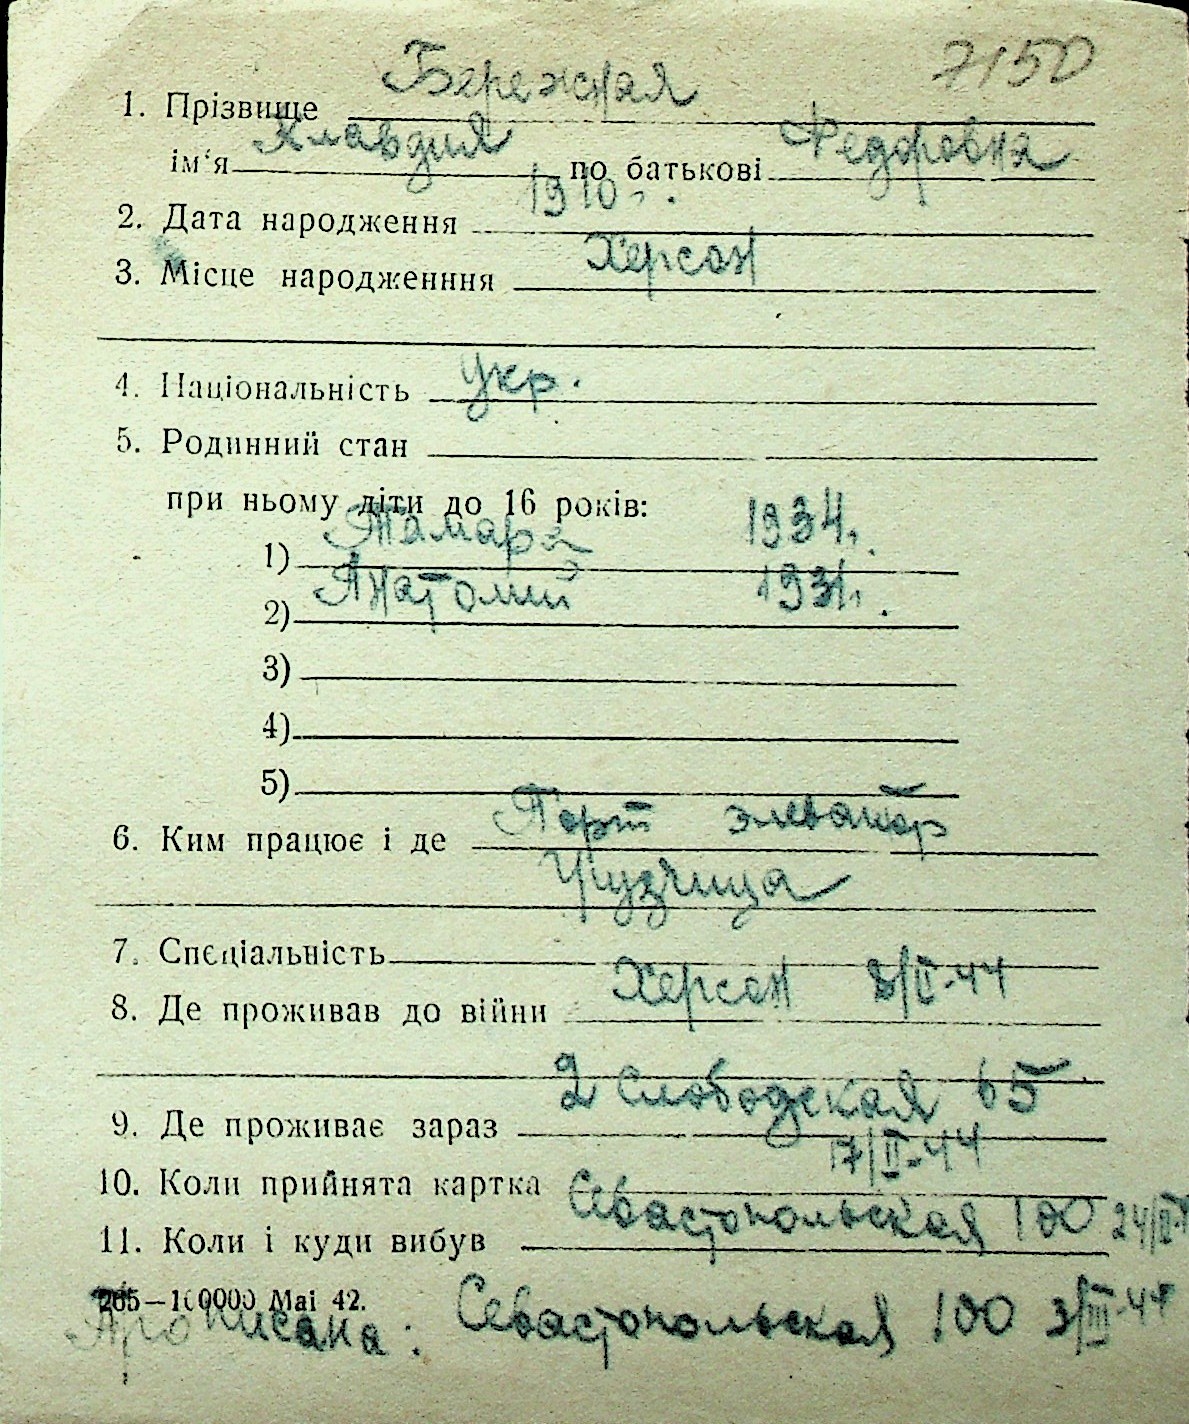 7150
1. Прізвище Бережная
ім'я Клавдия по батькові Федоровна
2. Дата народження 1910 г.
3. Місце народженння Херсон
4. Національність Укр.
5. Родинний стан
при ньому діти до 16 років:
1) Тамара 1934.
2) Анатолий 1931.
3)
4)
5)
6. Ким працює і де Порт элеватор
Грузчица
7. Спеціальність
8. Де проживав до війни Херсон 8/II-44
9. Де проживає зараз 2 Слободская 65
10. Коли прийнята картка 17/II-44
11. Коли і куди вибув Севастопольская 100 24/II-
265—100000 Mai 42.
Прописана: Севастопольская 100 3/III-44